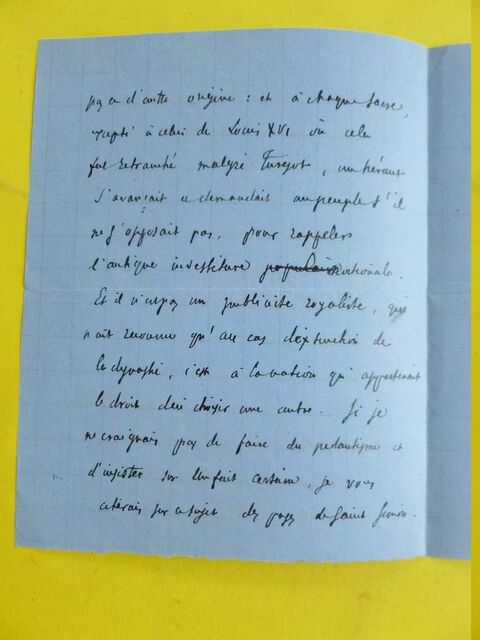 pas d'autre origine : et à chaque sacre,
excepté à celui de Louis XVI où cela
fut retranché malgré Turgot, un héraut
s'avançait et demandait au peuple s'il
ne s'opposait pas, pour rappeler
l'antique investiture populaire nationale.
Et il n'est pas un publiciste royaliste, qui
n'ait reconnu qu'au cas d'extinction de
la dynastie, c'est à la nation qu'appartenait
le droit d'en choisir une autre. Si je
ne craignais pas de faire du pédantisme et
d'insister sur un fait certain, je vous
citerais sur ce sujet des pages de Saint Simon.